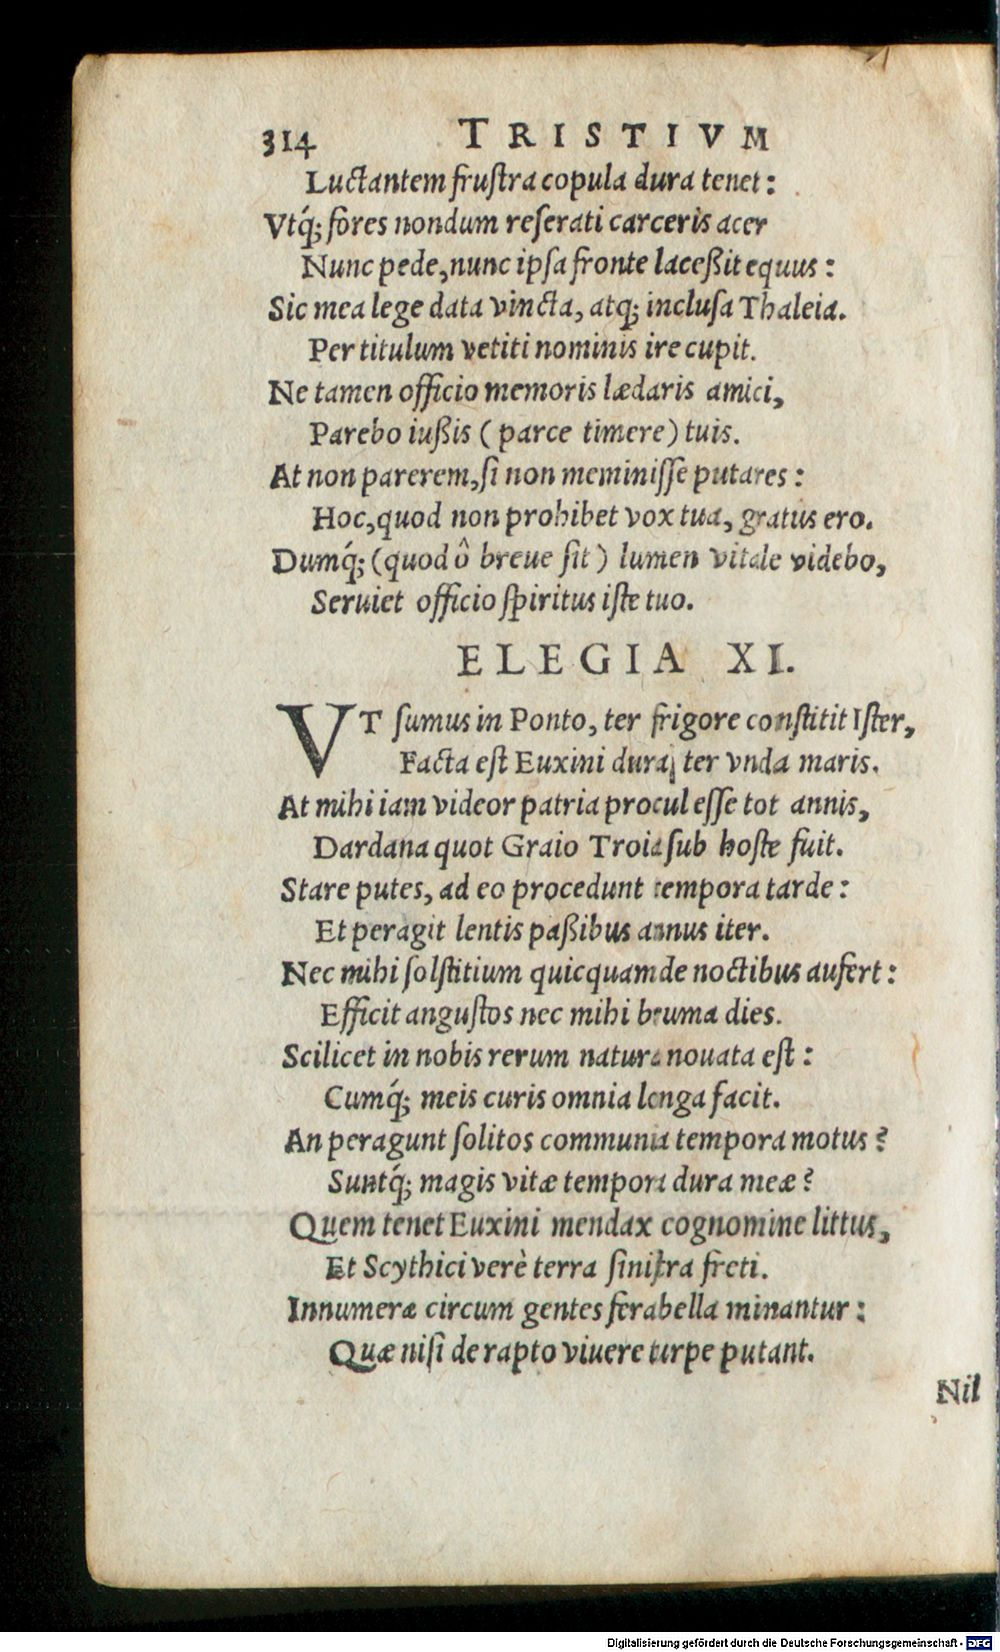 314 TRISTIVM
Luctantem frustra copula dura tenet:
Vtq́; fores nondum reserati carceris acer
Nunc pede, nunc ipsa fronte laceßit equus:
Sic mea lege data vincta, atq; inclusa Thaleia.
Per titulum vetiti nominis ire cupit.
Ne tamen officio memoris lædaris amici,
Parebo iußis (parce timere) tuis.
At non parerem, si non meminisse putares:
Hoc, quod non prohibet vox tua, gratus ero.
Dumq́; (quod ô breue sit) lumen vitale videbo,
Seruiet officio spiritus iste tuo.
ELEGIA XI.
VT sumus in Ponto, ter frigore constitit Ister,
Facta est Euxini dura, ter vnda maris.
At mihi iam videor patria procul esse tot annis,
Dardana quot Graio Troia sub hoste fuit.
Stare putes, ad eo procedunt tempora tarde:
Et peragit lentis paßibus annus iter.
Nec mihi solstitium quicquam de noctibus aufert:
Efficit angustos nec mihi bruma dies.
Scilicet in nobis rerum natura nouata est:
Cumq́; meis curis omnia longa facit.
An peragunt solitos communia tempora motus?
Suntq́; magis vitæ tempora dura meæ?
Quem tenet Euxini mendax cognomine littus,
Et Scythici verè terra sinistra freti.
Innumeræ circum gentes fera bella minantur:
Quæ nisi de rapto viuere turpe putant.
Nil
Digitalisierung gefördert durch die Deutsche Forschungsgemeinschaft - DFG